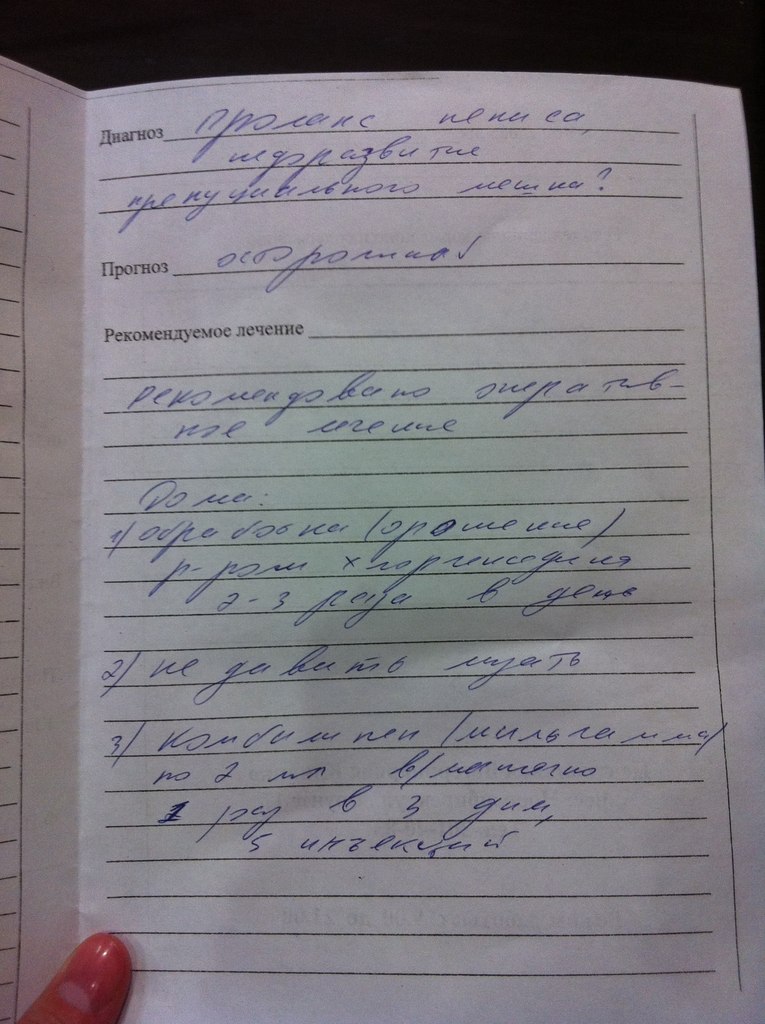 Диагноз пролапс пениса,
недоразвитие
препуциального мешка?
Прогноз осторожный
Рекомендуемое лечение
рекомендовано оператив-
ное лечение
Дома:
1) обработка (орошение)
р-ром хлоргексидина
2-3 раза в день
2) не давать лизать
3) Комбилипен (мильгамма)
по 2 мл в/мышечно
1 раз в 3 дня,
5 инъекций